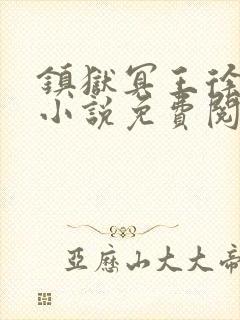 鎮獄冥王徐
小說免費閱
亞歷山大大帝